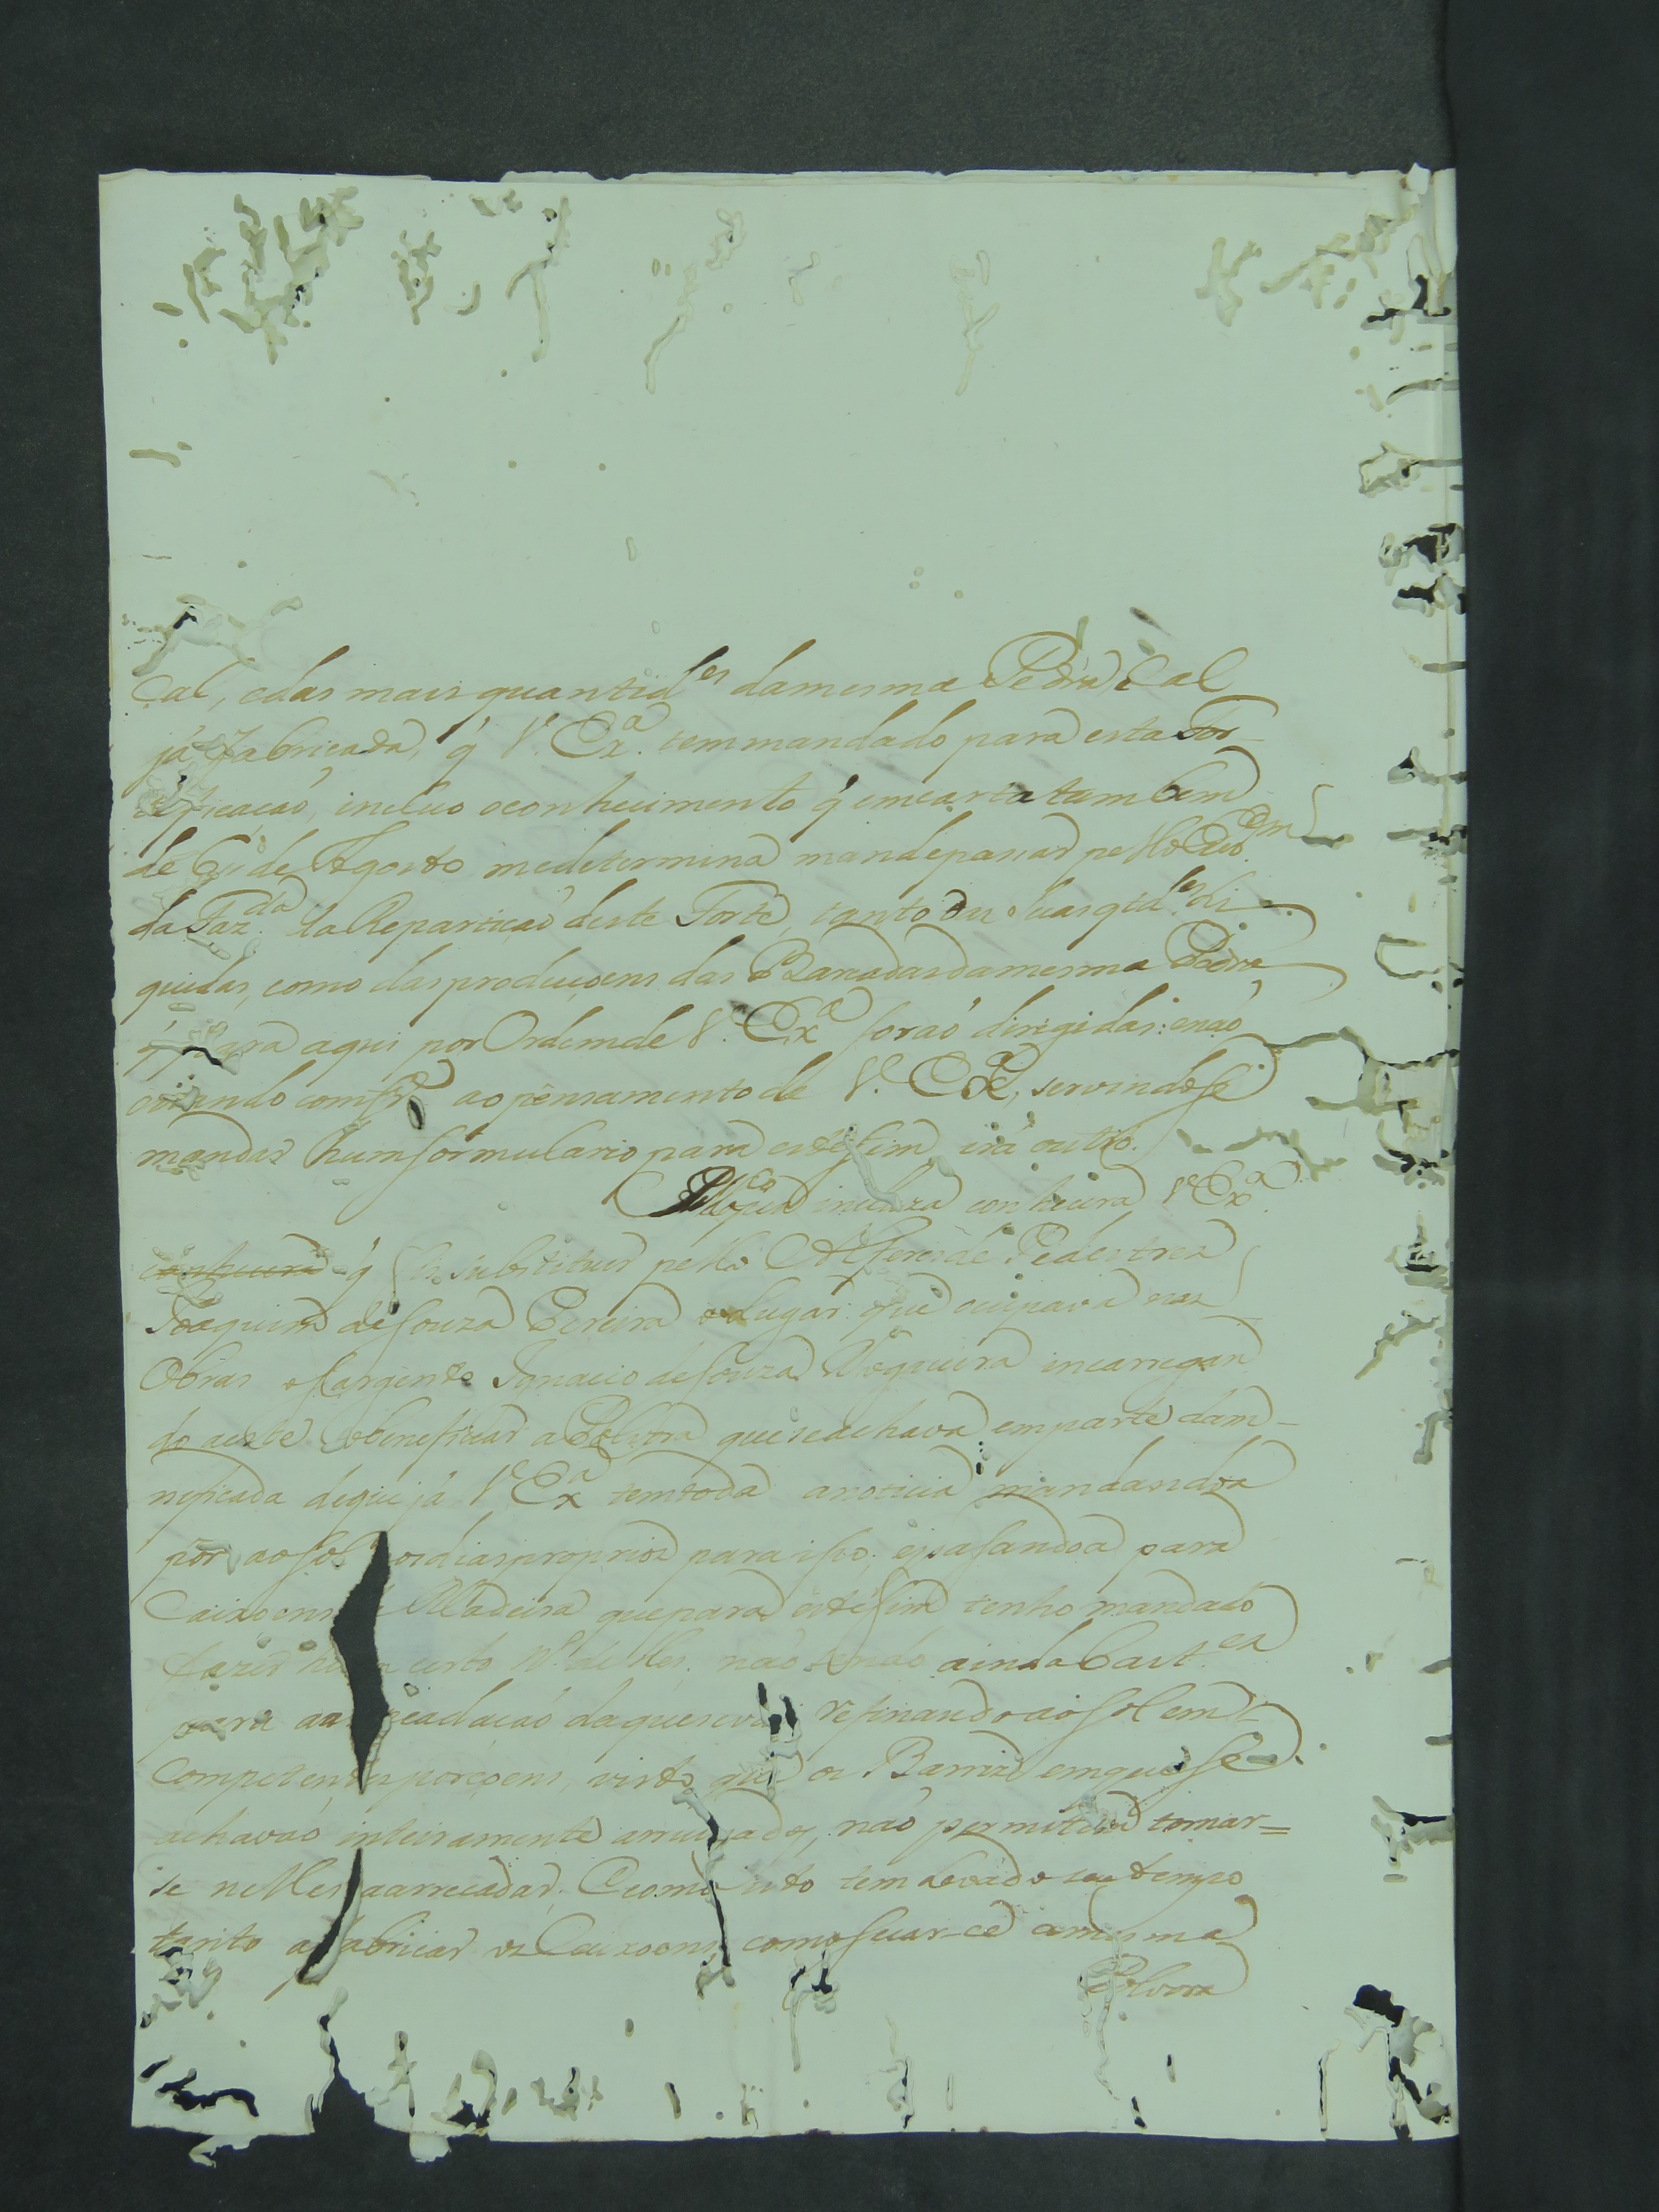 Cal, edas mais quantid.es damesma Pedra Cal
já fabricada, q̃ V. Ex.a tem mandado para esta For-
tificaçaõ, incluo o conhecimento q̃ em carta tambem
de 6 de Agosto medetermina mande passar pello Escr.am
da Faz.da da Repartiçaõ deste Forte, tanto das suas qtd.es li-
quidas, como das produçoens das Barcadas damesma Pedra
q̃ para aqui por Ordem de V. Ex.a foraõ dirigidas: enaõ
estando comfr.e ao pensamento de V. Ex.a, servindose
mandar hum formulario para este fim irá outro.
incluza conhecerá V. Ex.a
conhecerá q̃ fiz substituir pello Alferes de Pedestres
Joaquim de Souza Pereira o Lugar que ocupava nas
Obras o Sargento Ignacio de Souza Nogueira incarregan
do aeste o beneficiar a Polvora que se achava em parte dam-
neficada deque já V. Ex.a tem toda a noticia mandandoa
pôr ao Sol nos dias proprios para isso, e pasandoa para
Caixoens de Madeira que para este fim tenho mandado
fazer hum certo N.o delles, naõ sendo ainda bast.es
para aarrecadaçaõ daquese vai refinando ao Sol em
Competentes porçoens, visto que os Barris em que se
achavaõ inteiramente arruinados, naõ permitem tornar=
se nelles aarrecadar. Ecomo isto tem levado seu tempo
tanto a fabricar os Caixoens como secar-ce amesma
Polvora